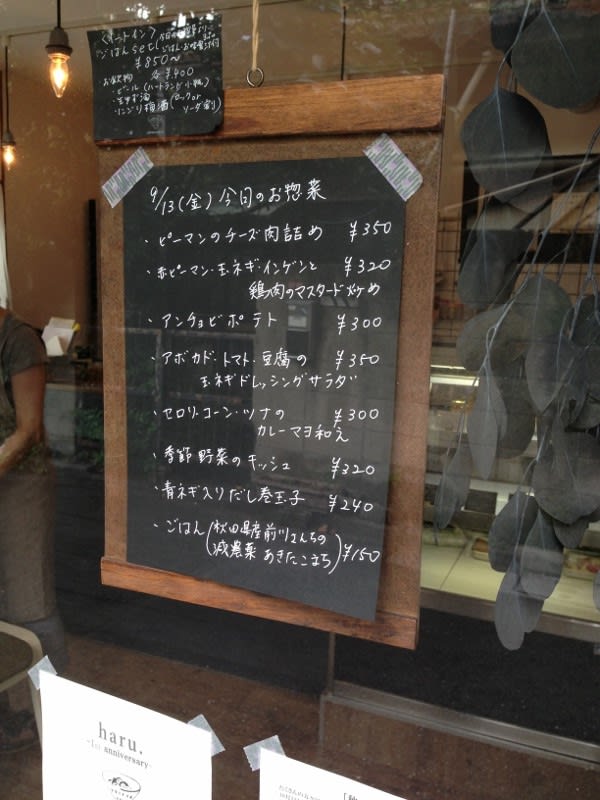 〈イートイン〉
ごはんset
¥850〜
・お飲物 各¥400
・ビール(ハートランド小瓶)
・りんご梅酒(ロックor
ソーダ割)
9/13(金) 今日のお惣菜
・ピーマンのチーズ肉詰め ¥350
・赤ピーマン・玉ネギ・インゲンと ¥320
鶏肉のマスタード炒め
・アンチョビポテト ¥300
・アボカド・トマト・豆腐の ¥350
玉ネギドレッシングサラダ
・セロリ・コーン・ツナの ¥300
カレーマヨ和え
・季節野菜のキッシュ ¥320
・青ネギ入りだし巻玉子 ¥240
・ごはん(秋田県産前川さんちの
減農薬 あきたこまち) ¥150
haru.
-1st anniversary-